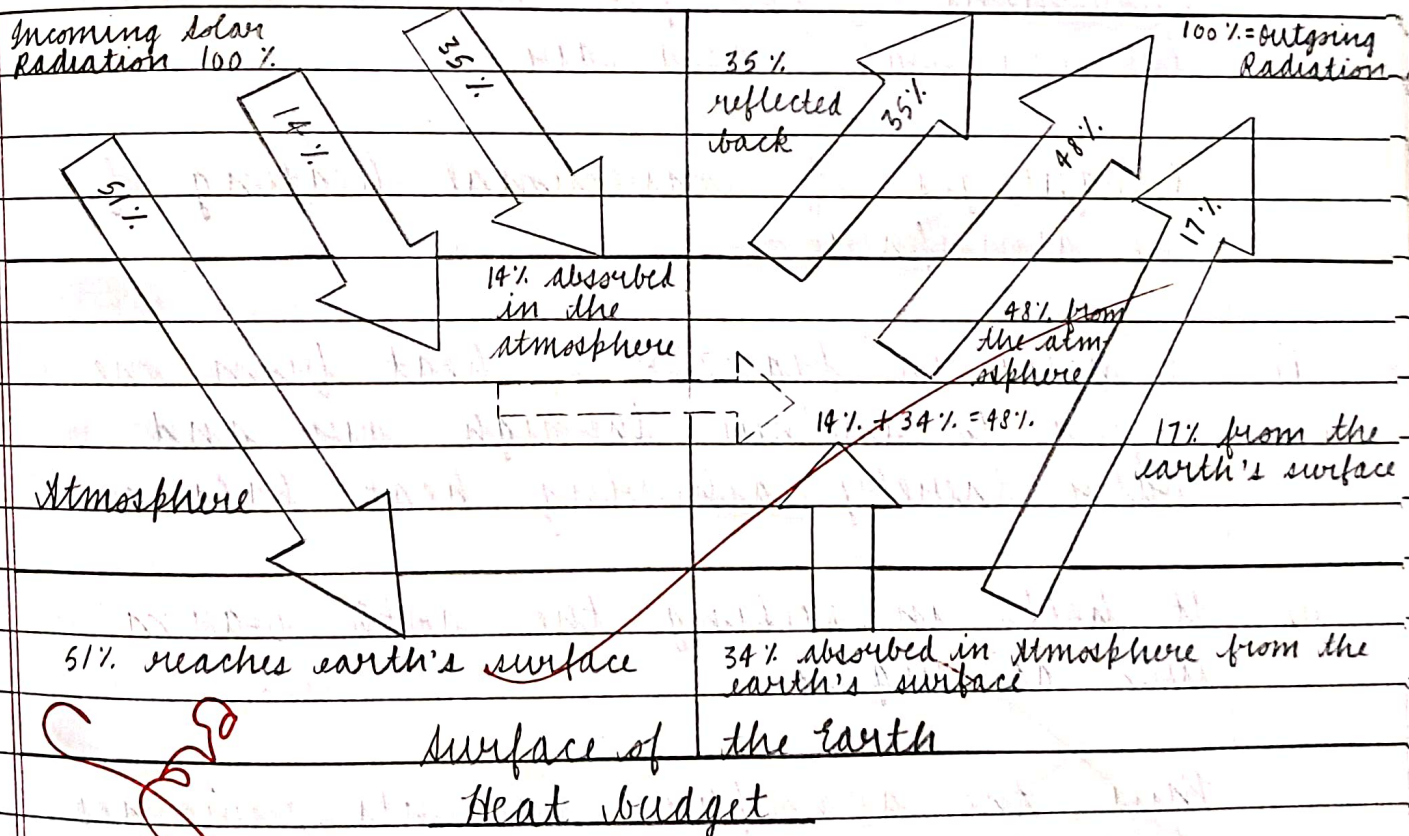 Incoming Solar
Radiation 100 %
35 %
14 %
51 %
14 % absorbed
in the
atmosphere
Atmosphere
51 % reaches earth's surface
35 %
reflected
back
35 %
48 %
17 %
100 % = Outgoing
Radiation
48 % from
the atm-
osphere
14 % + 34 % = 48 %
17 % from the
earth's surface
34 % absorbed in Atmosphere from the
earth's surface
Surface of the Earth
Heat budget